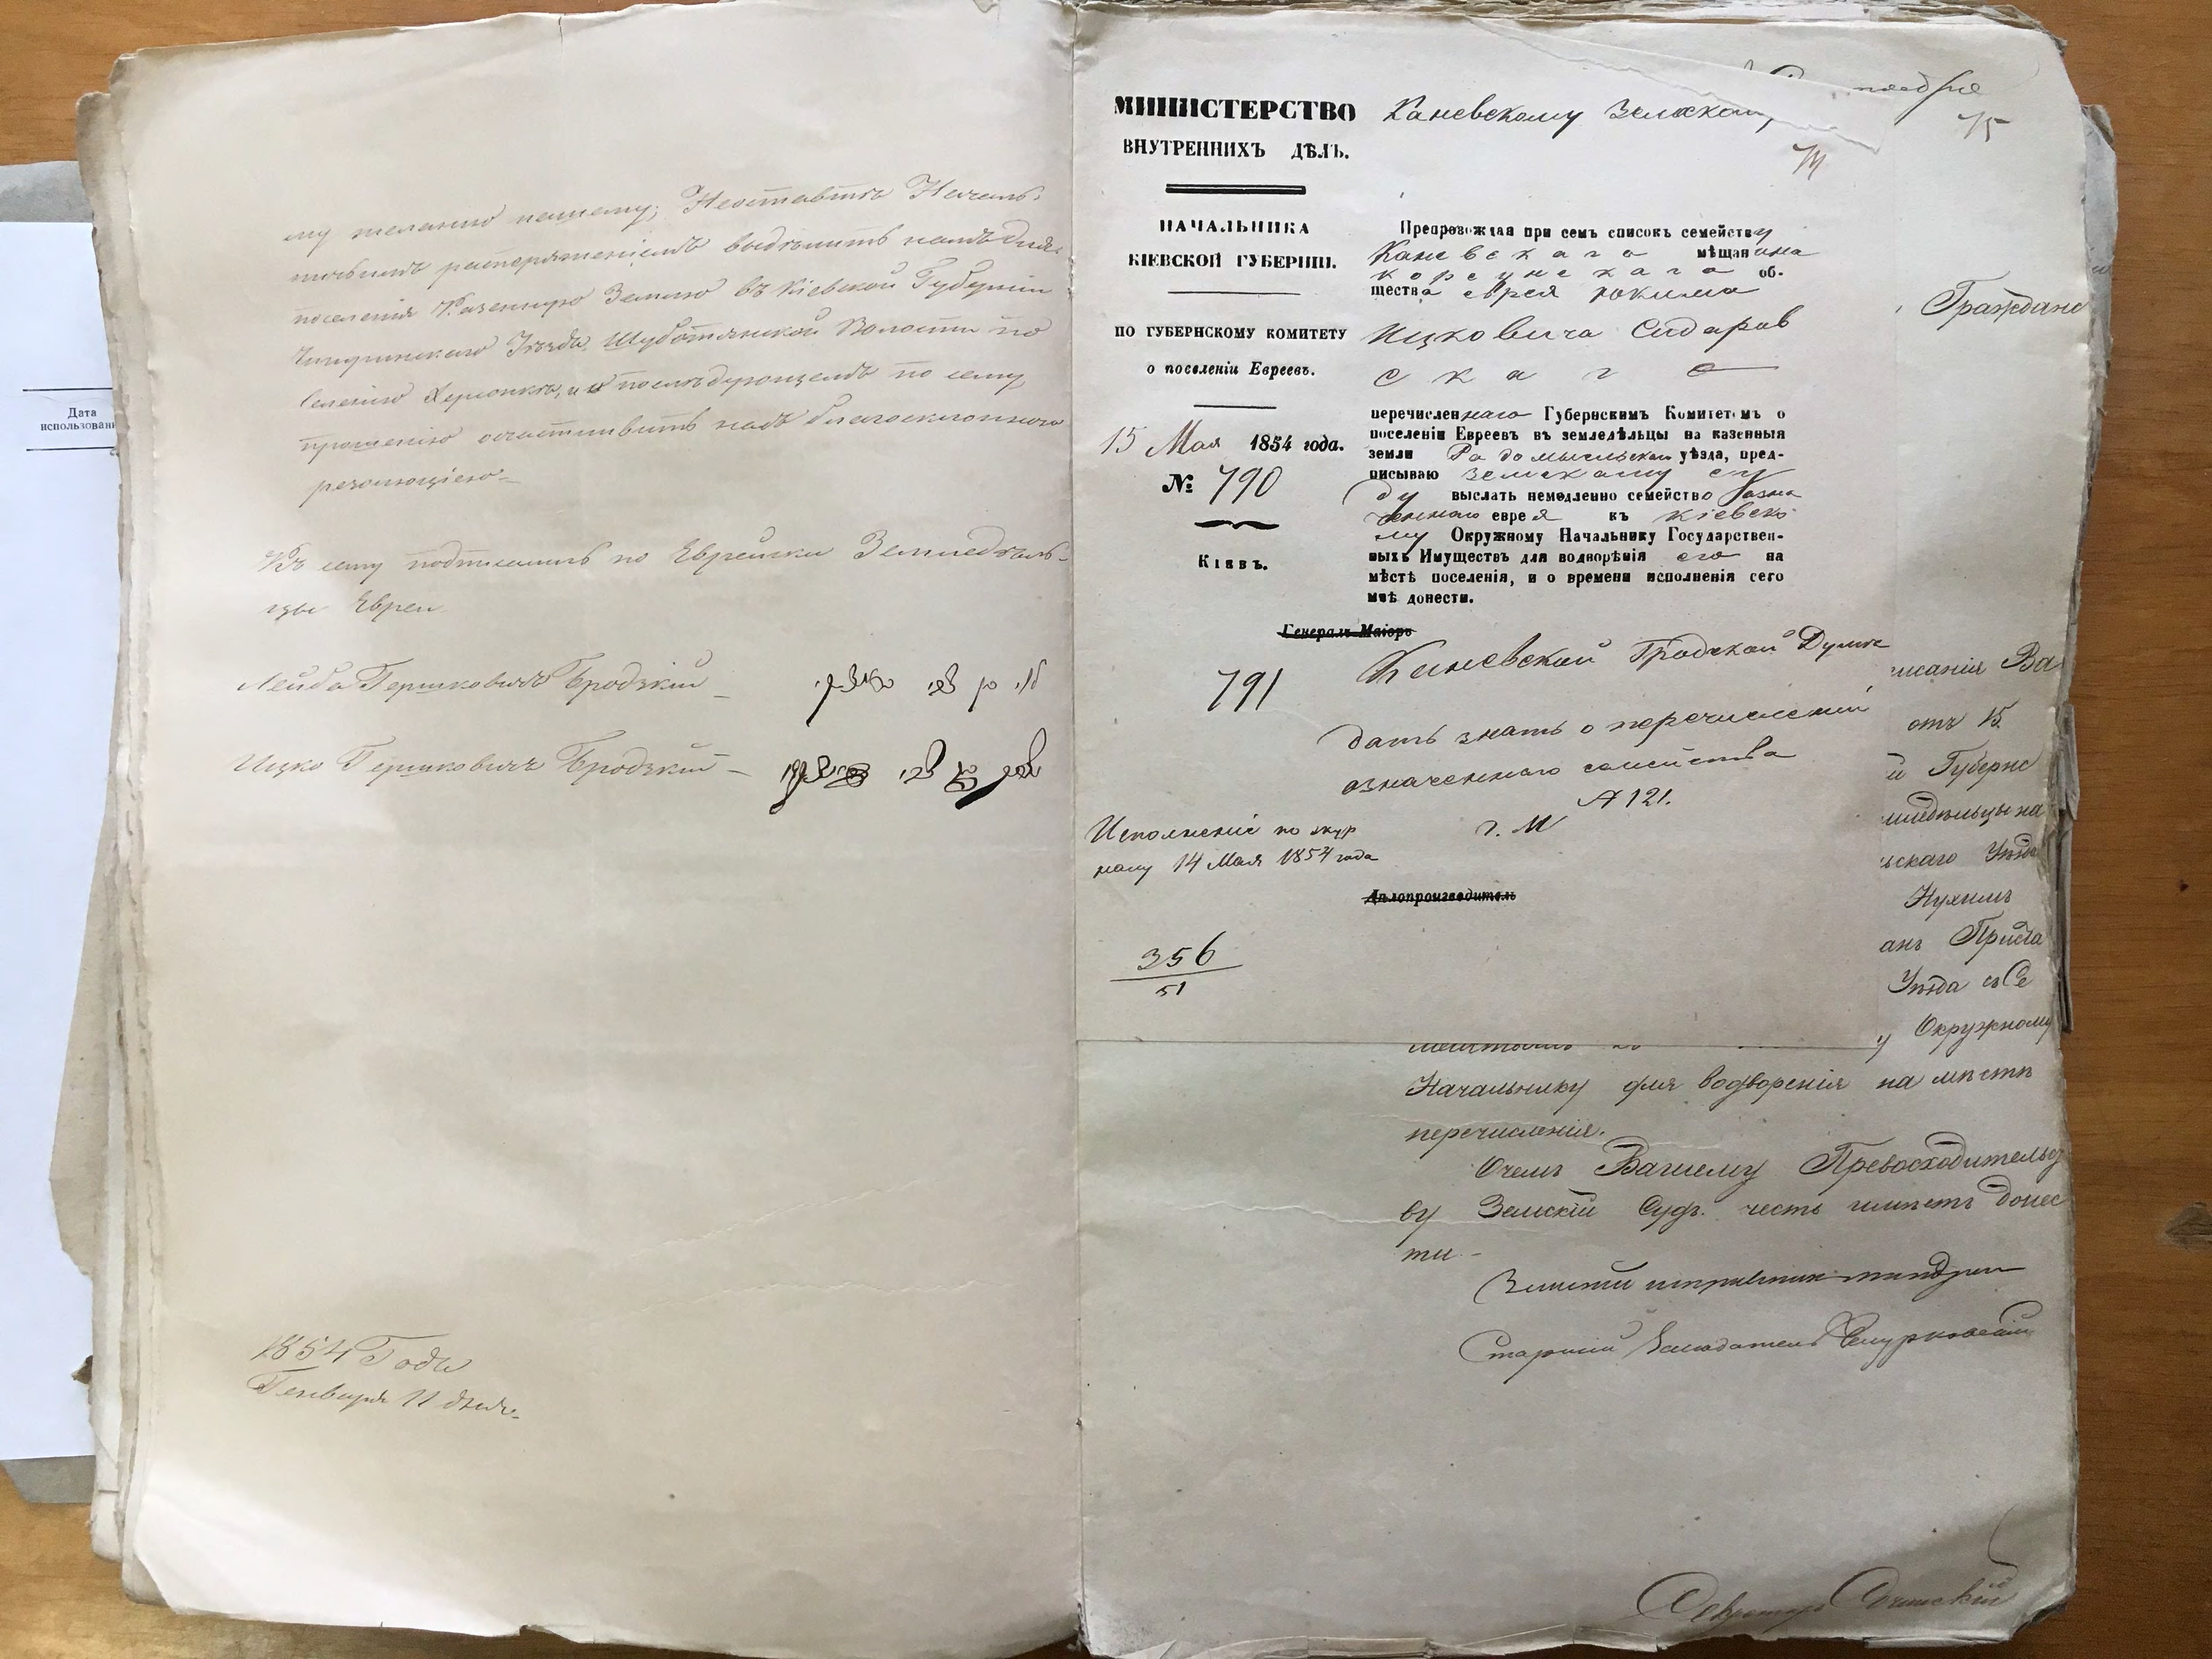 Дата
использован
му желанію нашему, Неоставить Началь-
ническимъ распоряженіемъ выдѣлить намъ для
поселенія Казенную Землю въ Кіевской Губерніи
Чигиринскаго Уѣзда, Шуботянской Волости по
селенію и послѣдующемъ по сему
прошенію осчастливить насъ благосклонною
резолюціею.-
Къ сему подписались по Еврейски Земледѣль-
цы Евреи
Лейба Гершковичъ Бродзкій -
Ицко Гершковичъ Бродзкій -
1854 Года
Генваря 11 дня.
МИНИСТЕРСТВО
ВНУТРЕННИХЪ ДѢЛЪ.
НАЧАЛЬНИКА
КІЕВСКОЙ ГУБЕРНІИ.
ПО ГУБЕРНСКОМУ КОМИТЕТУ
о поселеніи Евреевъ.
15 Мая 1854 года.
№ 790
Кіевъ.
Каневскому Земском
74
75
Препровождая при семъ списокъ семейству
Каневскаго мѣщанина
Корсунскаго об-
щества еврея Іокима
Ицковича Сидаров
скаго
перечисленнаго Губернскимъ Комитетомъ о
поселеніи Евреевъ въ земледѣльцы на казенныя
земли Радомысльскаго уѣзда, пред-
писываю Земскому Су
ду выслать немедленно семейство Озна
ченнаго еврея къ Кіевско
му Окружному Начальнику Государствен-
ныхъ Имуществъ для водворенія его на
мѣстѣ поселенія, и о времени исполненія сего
мнѣ донести.
Генералъ-Маіоръ
791
Каневской Градской Думѣ
дать знать о перечисленіи
означеннаго семейства
А 121.
г. М
Исполненіе по жур
налу 14 Мая 1854 года
Дѣлопроизводитель
356
51
Гражданс
писанія Ва
отъ 15
й Губернс
мледѣльцы на
ьскаго Уѣзда
Нухимъ
анъ Приста
Уѣзда съ Се
у Окружному
Начальнику для водворенія на мѣстѣ
перечисленія.
Очемъ Вашему Превосходительст
ву Земскій Судъ честь имѣетъ донес
ти -
Старшій Засѣдатель
Секретарь